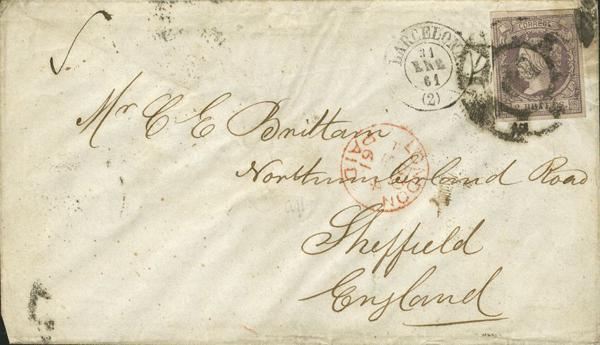 CORREOS
BARCELONA
31
ENE
61
(2)
Mr C E Brittain
LONDON
PAID
Northumberland Road
Sheffield
England